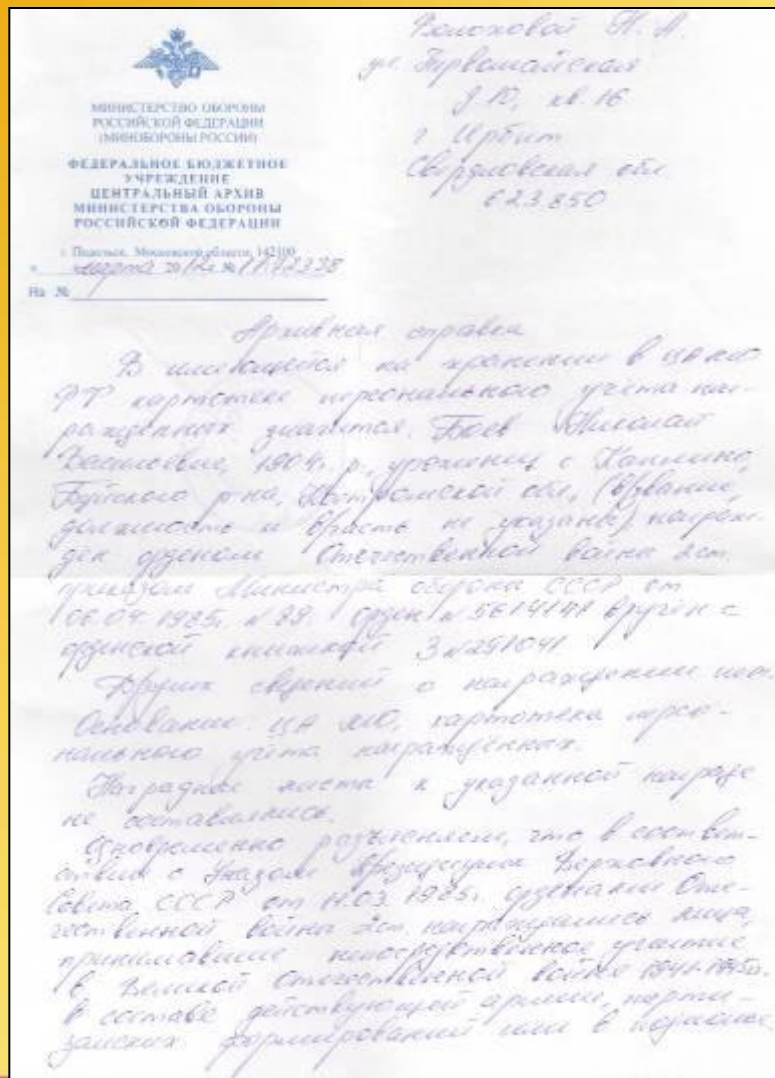 МИНИСТЕРСТВО ОБОРОНЫ
РОССИЙСКОЙ ФЕДЕРАЦИИ
(МИНОБОРОНЫ РОССИИ)
ФЕДЕРАЛЬНОЕ БЮДЖЕТНОЕ
УЧРЕЖДЕНИЕ
ЦЕНТРАЛЬНЫЙ АРХИВ
МИНИСТЕРСТВА ОБОРОНЫ
РОССИЙСКОЙ ФЕДЕРАЦИИ
г. Подольск, Московской области, 142100
марта 2012г. №
На №
Н. А.
ул. Первомайская
д. 10, кв. 16
г. Ирбит
Свердловская обл
623850
Архивная справка
В имеющейся на хранении в ЦАМО
РФ картотеке персонального учёта наг-
раждённых значится. Боев Николай
Васильевич, 1904г. р., уроженец с
Буйского р-на, Костромской обл, (в/звание,
должность и в/часть не указаны) награж-
ден орденом Отечественной войны 2ст.
приказом Министра обороны СССР от
06.04.1985г. Орден № вручён с
орденской книжкой
Других сведений о награждении нет.
Основание: ЦА МО, картотека персо-
нального учёта награждённых.
Наградные листы к указанной награде
не составлялись.
Одновременно разъясняем, что в соответ-
ствии с Указом Президиума Верховного
Совета СССР от 11.03.1985г. орденами Оте-
чественной войны 2ст. награждались лица,
принимавшие непосредственное участие
в Великой Отечественной войне 1941-1945гг.
в составе действующей армии, парти-
занских формирований или в подполье